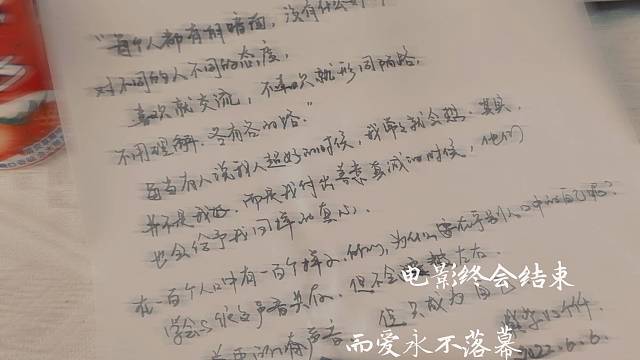 "每个人都有阴暗面，没有什么好
对不同的人不同的态度，
喜欢就交流，不喜欢就形同陌路，
不用理解，各有各的路。"
每当有人说我人超好的时候，我都会想，其实
并不是我好，而是我付出善意真诚的时候，他们
也会给予我同样的真心。
在一百个人口中有一百个样子的你们，为什么要在乎别人口中的自己呢？
学会与彼之声音共存，但不会被左右
电影终会结束
有声音
但只成为自己
而爱永不落幕
2022.6.6.